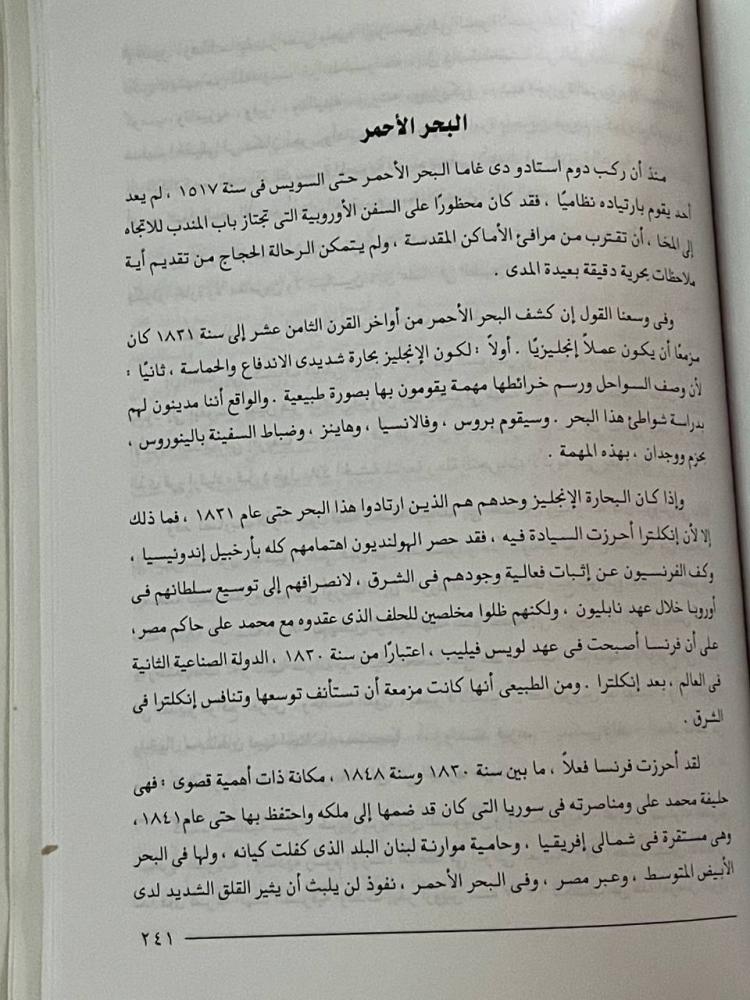 البحر الأحمر
منذ أن ركب دوم استادو دى غاما البحر الأحمر حتى السويس فى سنة ١٥١٧ ، لم يعد
أحد يقوم بارتياده نظاميًا ، فقد كان محظورًا على السفن الأوروبية التى تجتاز باب المندب للاتجاه
إلى المخا ، أن تقترب من مرافئ الأماكن المقدسة ، ولم يتمكن الرحالة الحجاج من تقديم أية
ملاحظات بحرية دقيقة بعيدة المدى .
وفى وسعنا القول إن كشف البحر الأحمر من أواخر القرن الثامن عشر إلى سنة ١٨٣١ كان
مزمعًا أن يكون عملاً إنجليزيًا . أولاً : لكون الإنجليز بحارة شديدى الاندفاع والحماسة ، ثانيًا :
لأن وصف السواحل ورسم خرائطها مهمة يقومون بها بصورة طبيعية . والواقع أننا مدينون لهم
بدراسة شواطئ هذا البحر . وسيقوم بروس ، وفالانسيا ، وهاينز ، وضباط السفينة بالينوروس ،
بحزم ووجدان ، بهذه المهمة .
وإذا كان البحارة الإنجليز وحدهم هم الذين ارتادوا هذا البحر حتى عام ١٨٣١ ، فما ذلك
إلا لأن إنكلترا أحرزت السيادة فيه ، فقد حصر الهولنديون اهتمامهم كله بأرخبيل إندونيسيا ،
وكف الفرنسيون عن إثبات فعالية وجودهم فى الشرق ، لانصرافهم إلى توسيع سلطانهم فى
أوروبا خلال عهد نابليون ، ولكنهم ظلوا مخلصين للحلف الذى عقدوه مع محمد على حاكم مصر ،
على أن فرنسا أصبحت فى عهد لويس فيليب ، اعتبارًا من سنة ١٨٣٠ ، الدولة الصناعية الثانية
فى العالم ، بعد إنكلترا . ومن الطبيعى أنها كانت مزمعة أن تستأنف توسعها وتنافس إنكلترا فى
الشرق .
لقد أحرزت فرنسا فعلاً ، ما بين سنة ١٨٣٠ وسنة ١٨٤٨ ، مكانة ذات أهمية قصوى : فهى
حليفة محمد على ومناصرته فى سوريا التى كان قد ضمها إلى ملكه واحتفظ بها حتى عام ١٨٤١ ،
وهى مستقرة فى شمالى إفريقيا ، وحامية موارنة لبنان البلد الذى كفلت كيانه ، ولها فى البحر
الأبيض المتوسط ، وعبر مصر ، وفى البحر الأحمر ، نفوذ لن يلبث أن يثير القلق الشديد لدى
٢٤١